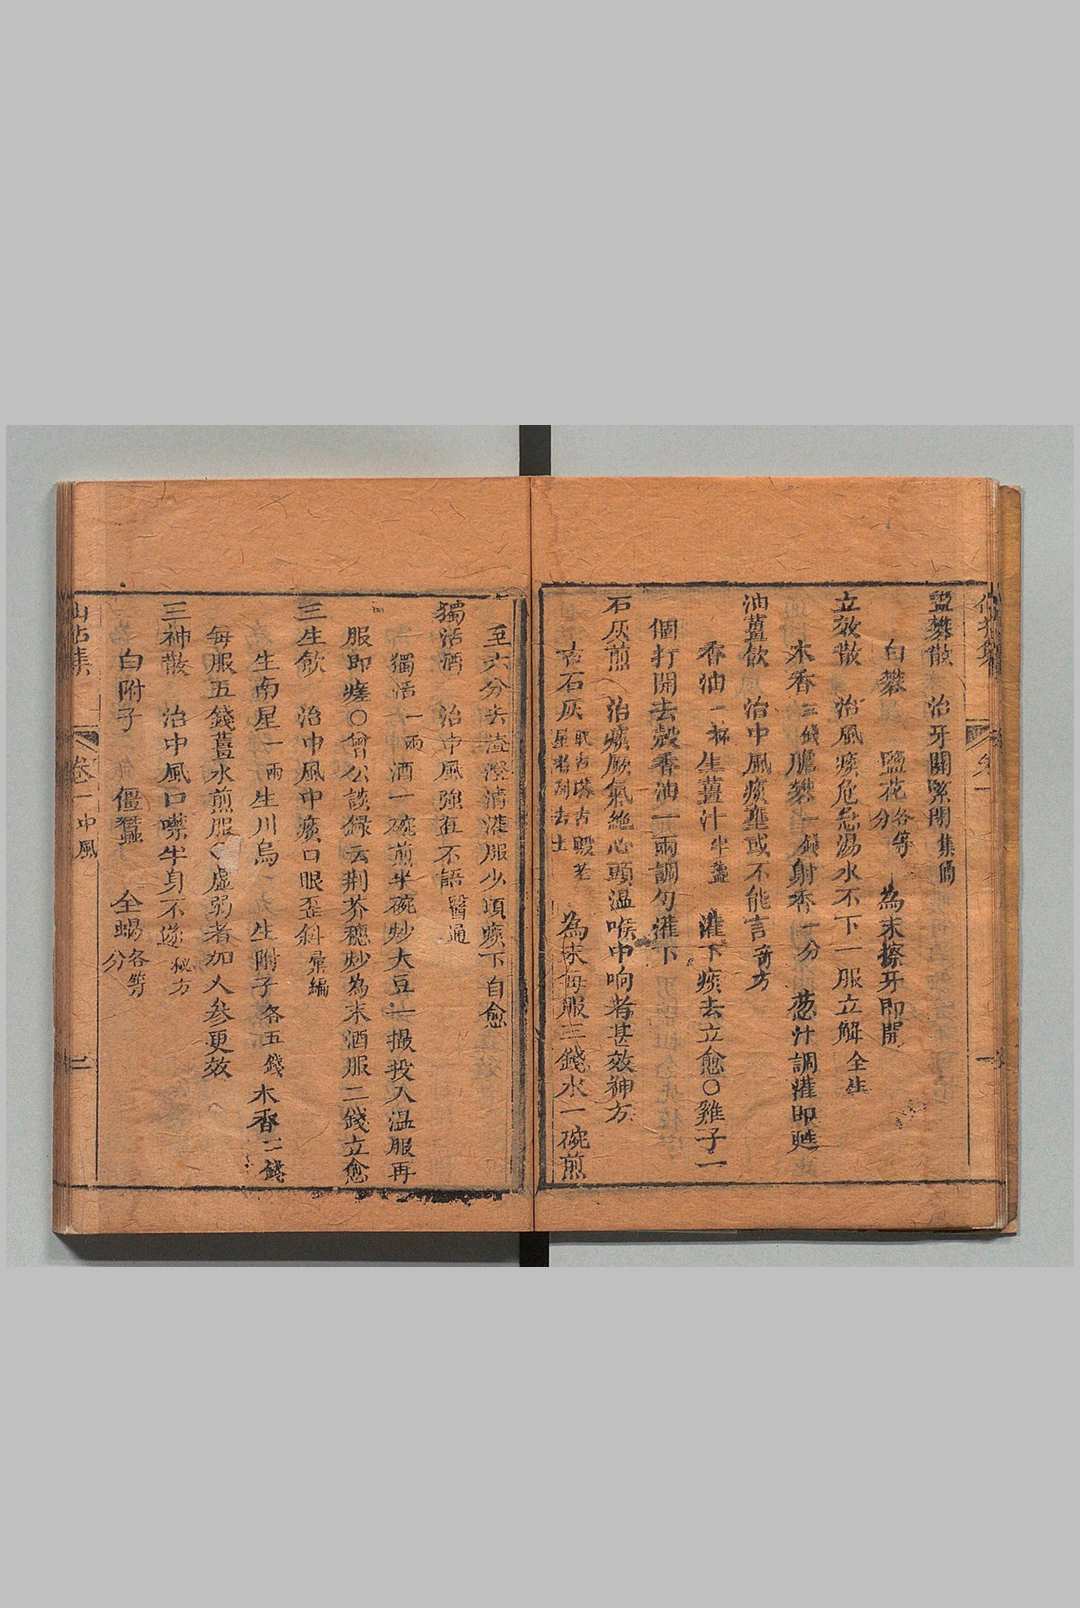 鹽礬散 治牙關緊閉 集備
白礬 鹽花各等分 為末擦牙即開
立效散 治風痰危急湯水不下一服立解 全生
木香三錢膽礬一錢射香一分 葱汁調灌即甦
油薑飲 治中風痰壅或不能言 奇方
香油一杯生薑汁半盞 灌下痰去立愈○雞子一
個打開去殼香油一兩調勻灌下
石灰煎 治痰厥氣絶心頭温喉中响者甚效神方
古石灰 為末每服三錢水一碗煎
至六分去渣澄清灌服少頃痰下自愈
獨活酒 治中風強直不語 醫通
獨活一兩酒一碗煎半碗炒大豆一撮投入温服再
服即瘥○曾公談録云荆芥穗炒為末酒服二錢立愈
三生飲 治中風中痰口眼歪斜 彙編
生南星一兩生川烏 生附子各五錢木香二錢
每服五錢薑水煎服 虚弱者加人參更效
三神散 治中風口噤半身不遂 秘方
白附子 僵蠶 全蝎各等分
卷一中風 二